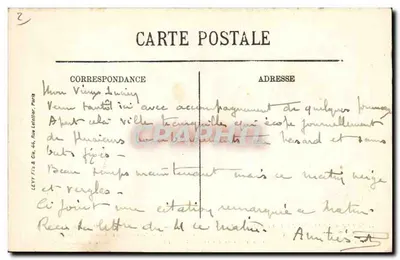 2
CARTE POSTALE
CORRESPONDANCE
ADRESSE
LEVY Fils & Cie, 44, Rue Letellier, Paris
Mon Vieux
Venu tantôt ici avec accompagnement de quelques
Apart cela ville tranquille qui écope journellement
de plusieurs hasard et sans
buts fixés -
Beau temps maintenant mais ce matin neige
et verglas -
Ci joint une citation remarquée ce matin.
Reçu ta lettre du 11 ce matin.
Amitiés